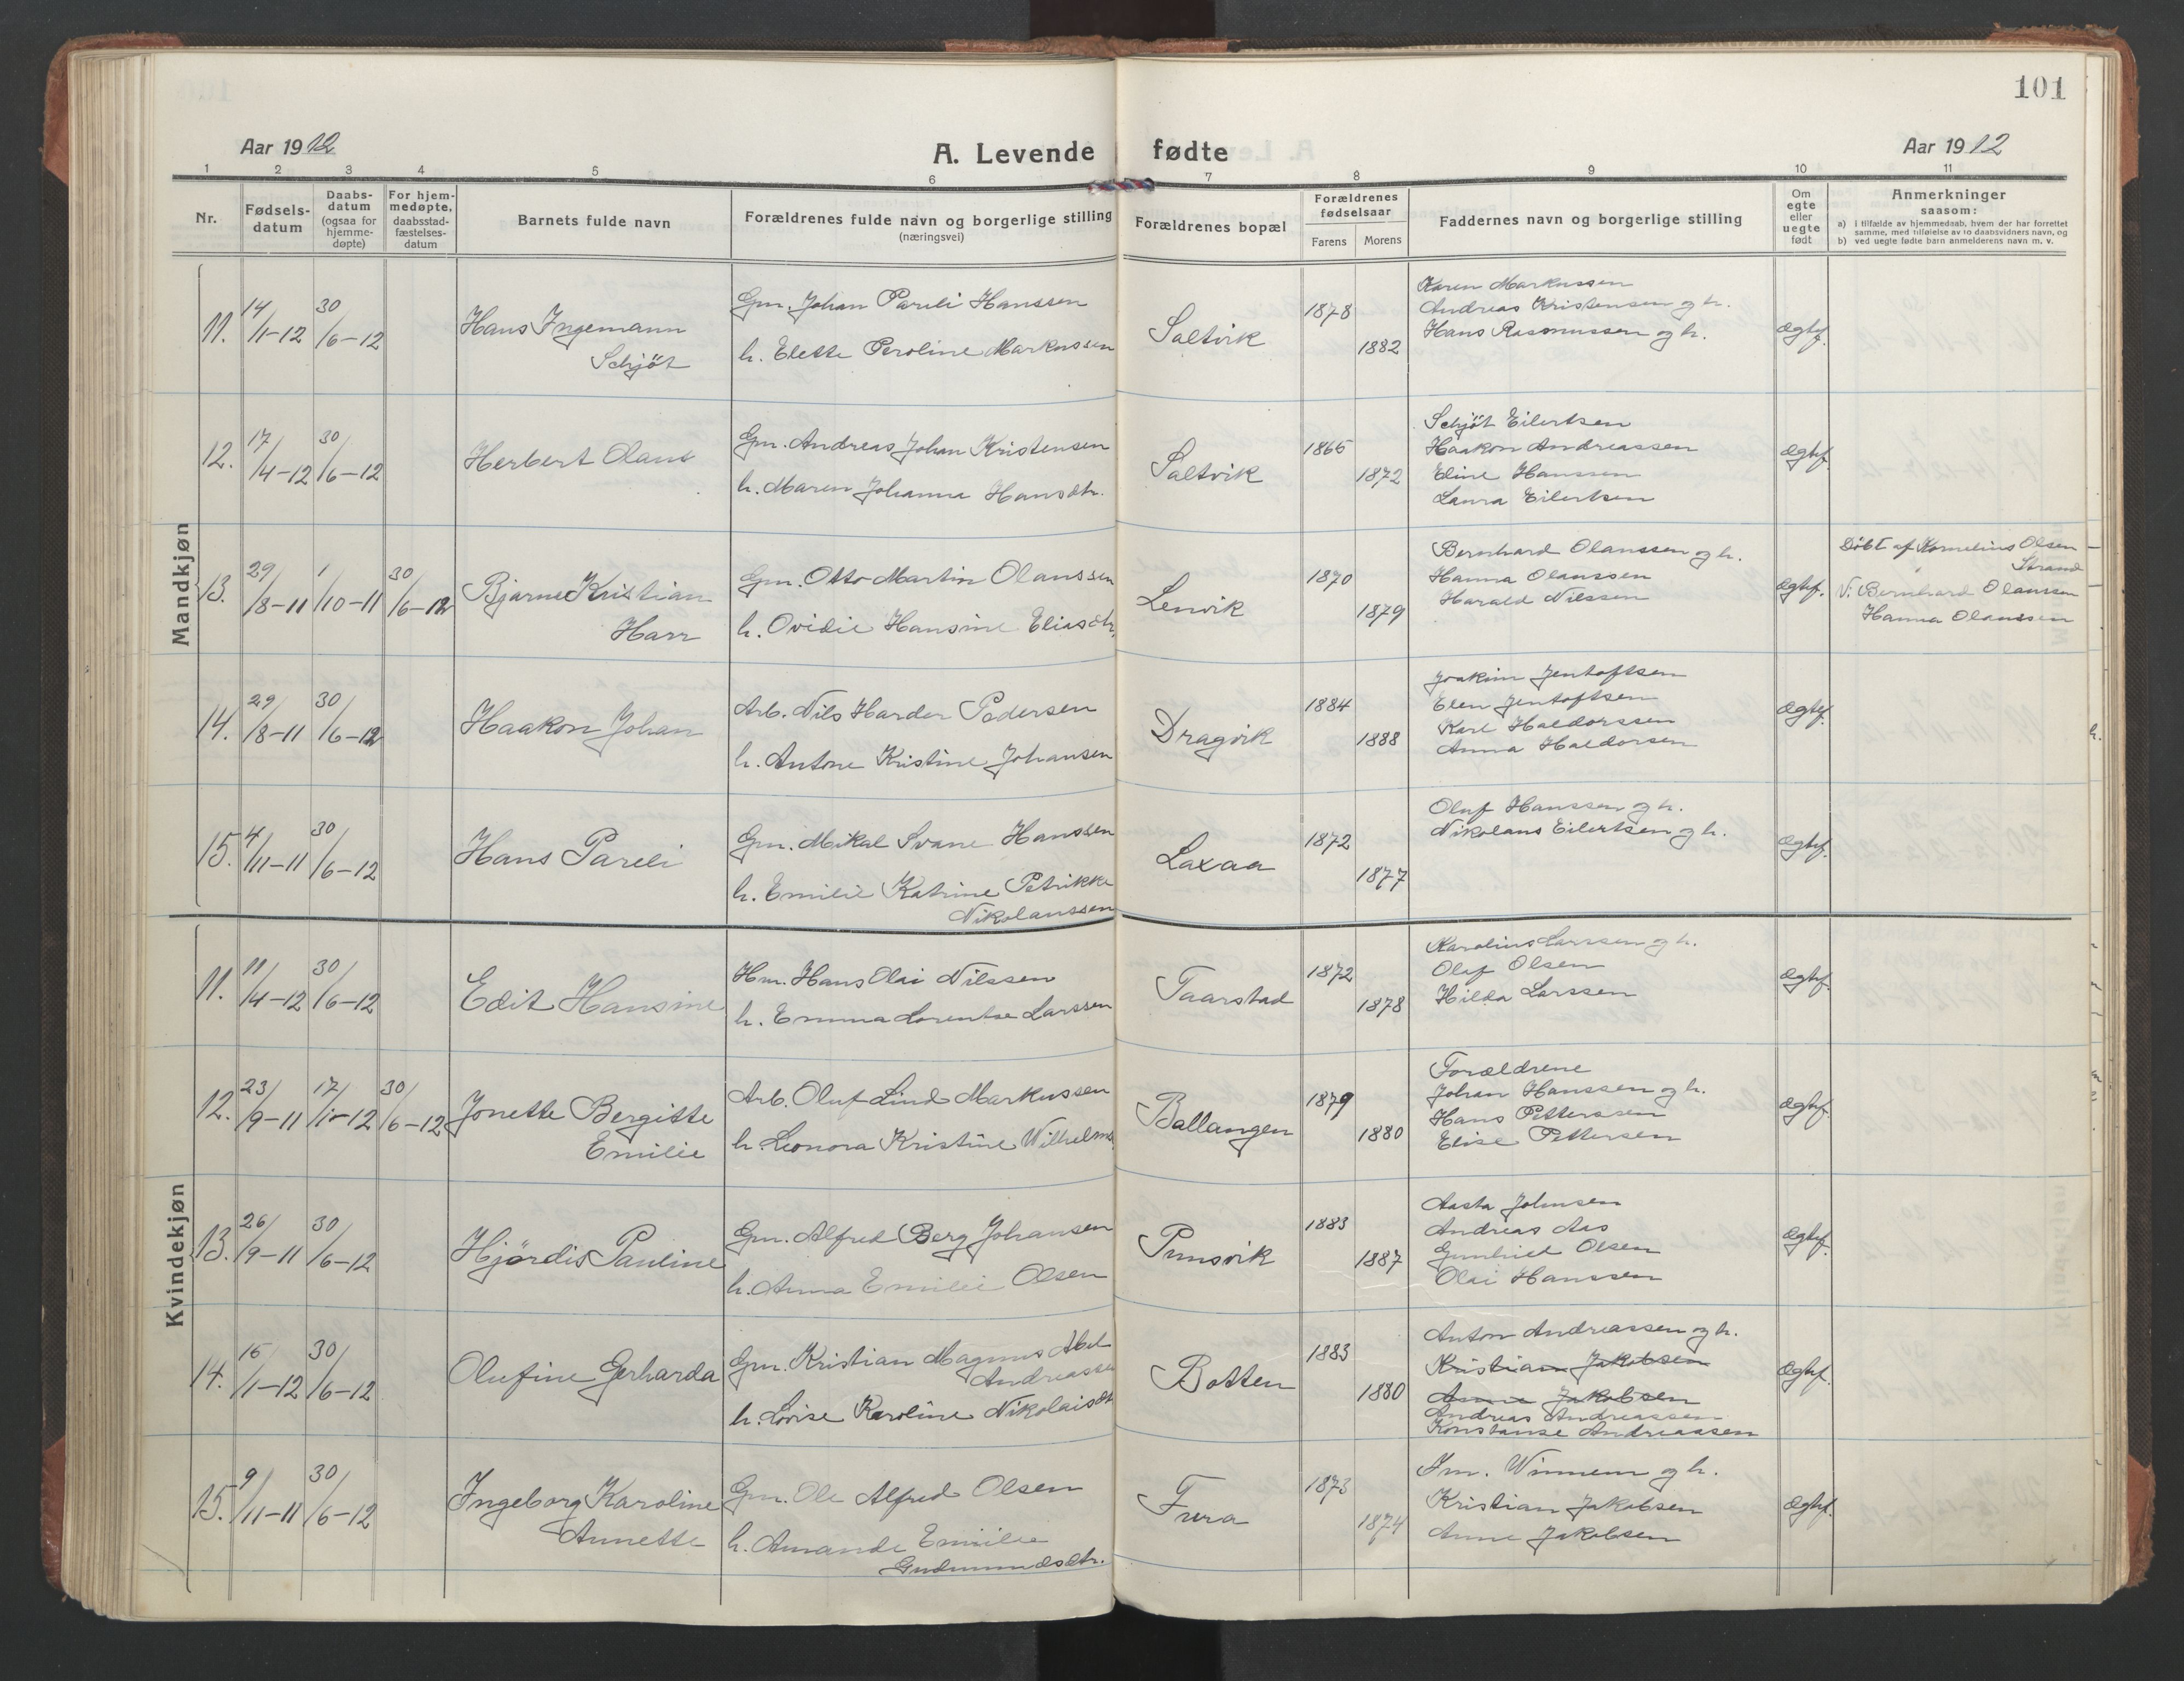 101
Aar 1912
A. Levende fødte
Aar 1912
1 2 3 4 5 6 7 8 9 10 11
Nr.
Fødsels-
datum
Daabs-
datum
(ogsaa for
hjemme-
døpte)
For hjem-
medøpte,
daabsstad-
fæstelses-
datum
Barnets fulde navn
Forældrenes fulde navn og borgerlige stilling
(næringsvei)
Forældrenes bopæl
Forældrenes
fødselsaar
Farens Morens
Faddernes navn og borgerlige stilling
Om
egte
eller
uegte
født
Anmerkninger
saasom:
a) i tilfælde av hjemmedaab, hvem der har forrettet
samme, med tilføielse av to daabsvidners navn, og
b) ved uegte fødte barn anmelderens navn m. v.
Mandkjøn
11. 14/1-12 30/6-12
Hans Ingemann
Schjöt
Gm. Johan Pareli Hanssen
h. Elette Peroline Markussen
Saltvik
1878
1882
Karen Markussen
Andreas Kristensen og h.
Hans Rasmussen og h.
Ægtef.
12. 17/4-12 30/6-12
Herbert Olaus
Gm. Andreas Johan Kristensen
h. Maren Johanna Hansdtr.
Saltvik
1865
1872
Schjöt Eilertsen
Haakon Andreassen
Eline Hanssen
Laura Eilertsen
Ægtef.
13. 29/8-11 1/10-11 30/6-12
Bjarne Kristian
Harr
Gm. Otto Martin Olaussen
h. Ovidie Hansine Eliasdtr.
Lenvik
1870
1879
Bernhard Olaussen og h.
Hanna Olaussen
Harald Nilssen
Ægtef.
Döbt af Kornelius Olsen
Strand
V: Bernhard Olaussen
Hanna Olaussen
14. 29/8-11 30/6-12
Haakon Johan
Arb. Nils Harder Pedersen
h. Antone Kristine Johansen
Dragvik
1884
1888
Joakim Jentoftsen
Elen Jentoftsen
Karl Haldorssen
Anna Haldorsen
Ægtef.
15. 4/11-11 30/6-12
Hans Pareli
Gm. Mikal Svane Hanssen
h. Emilie Katrine Petrikke
Nikolaussen
Laxaa
1872
1877
Oluf Hanssen og h.
Nikolaus Eilertsen og h.
Ægtef.
Kvindekjøn
11. 11/4-12 30/6-12
Edit Hansine
Hm. Hans Olai Nilssen
h. Emma Lorentse Larssen
Taarstad
1872
1878
Karolius Larssen og h.
Olaf Olsen
Hilda Larssen
Ægtef.
12. 23/9-11 17/1-12 30/6-12
Jonette Bergitte
Emilie
Arb. Oluf Lind Markussen
h. Leonora Kristine Wilhelms.
Ballangen
1879
1880
Forældrene
Johan Hanssen og h.
Hans Pettersen
Elise Pettersen
Ægtef.
13. 26/9-11 30/6-12
Hjördis Pauline
Gm. Alfred Berg Johansen
h. Anna Emilie Olsen
Punsvik
1883
1887
Aasta Johnsen
Andreas Aas
Gunhild Olsen
Olai Hanssen
Ægtef.
14. 16/1-12 30/6-12
Olufine Gerharda
Gm. Kristian Magnus Abel
Andreassen
h. Lovise Karoline Nikolaisdt
Botten
1883
1880
Anton Andreassen og h.
Kristian Jakobsen
Anne Jakobsen
Andreas Andreassen
Konstanse Andreassen
Ægtef.
15. 9/11-11 30/6-12
Ingeborg Karoline
Annette
Gm. Ole Alfred Olsen
h. Amanda Emilie
Gudmundsdtr.
Frura
1873
1874
Winnem og h.
Kristian Jakobsen
Anne Jakobsen
Ægtef.